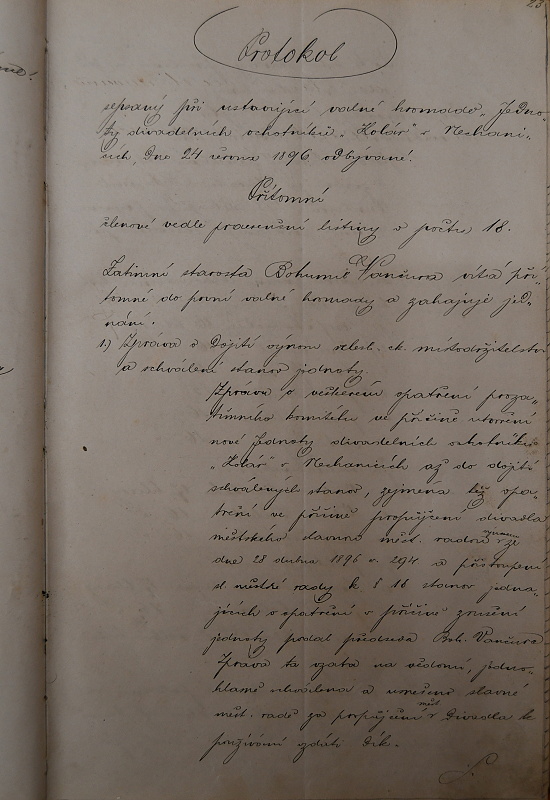 23
Protokol
sepsaný při ustavující valné hromadě „Jedno-
ty divadelních ochotníků „Kolár" v Nechani-
cích, dne 24 června 1896 odbývané.
Přítomni
členové vedle praesenční listiny v počtu 18.
Zatimní starosta Bohumil Vančura vítá pří-
tomné do první valné hromady a zahajuje jed-
nání.
1.) Zpráva o dojití výnosu veleslav. ck. místodržitelství
a schválení stanov jednoty.
Zpráva o veškerém opatření proza-
tímního komitétu ve příčině utvoření
nové Jednoty divadelních ochotníků
„Kolár" v Nechanicích až do dojití
schválených stanov, zejména též opa-
tření ve příčině propůjčení divadla
městského slavnou měst. radou
dne 28 dubna 1896 č. 294 a přistoupení
sl. městské rady k § 16 stanov jedna-
jících o opatření v příčině zrušení
jednoty podal předseda Boh. Vančura
Zpráva ta vzata na vědomí, jedno-
hlasně schválena a usneseno slavné
měst. radě za propůjčení měst. divadla k
používání vzdáti dík.